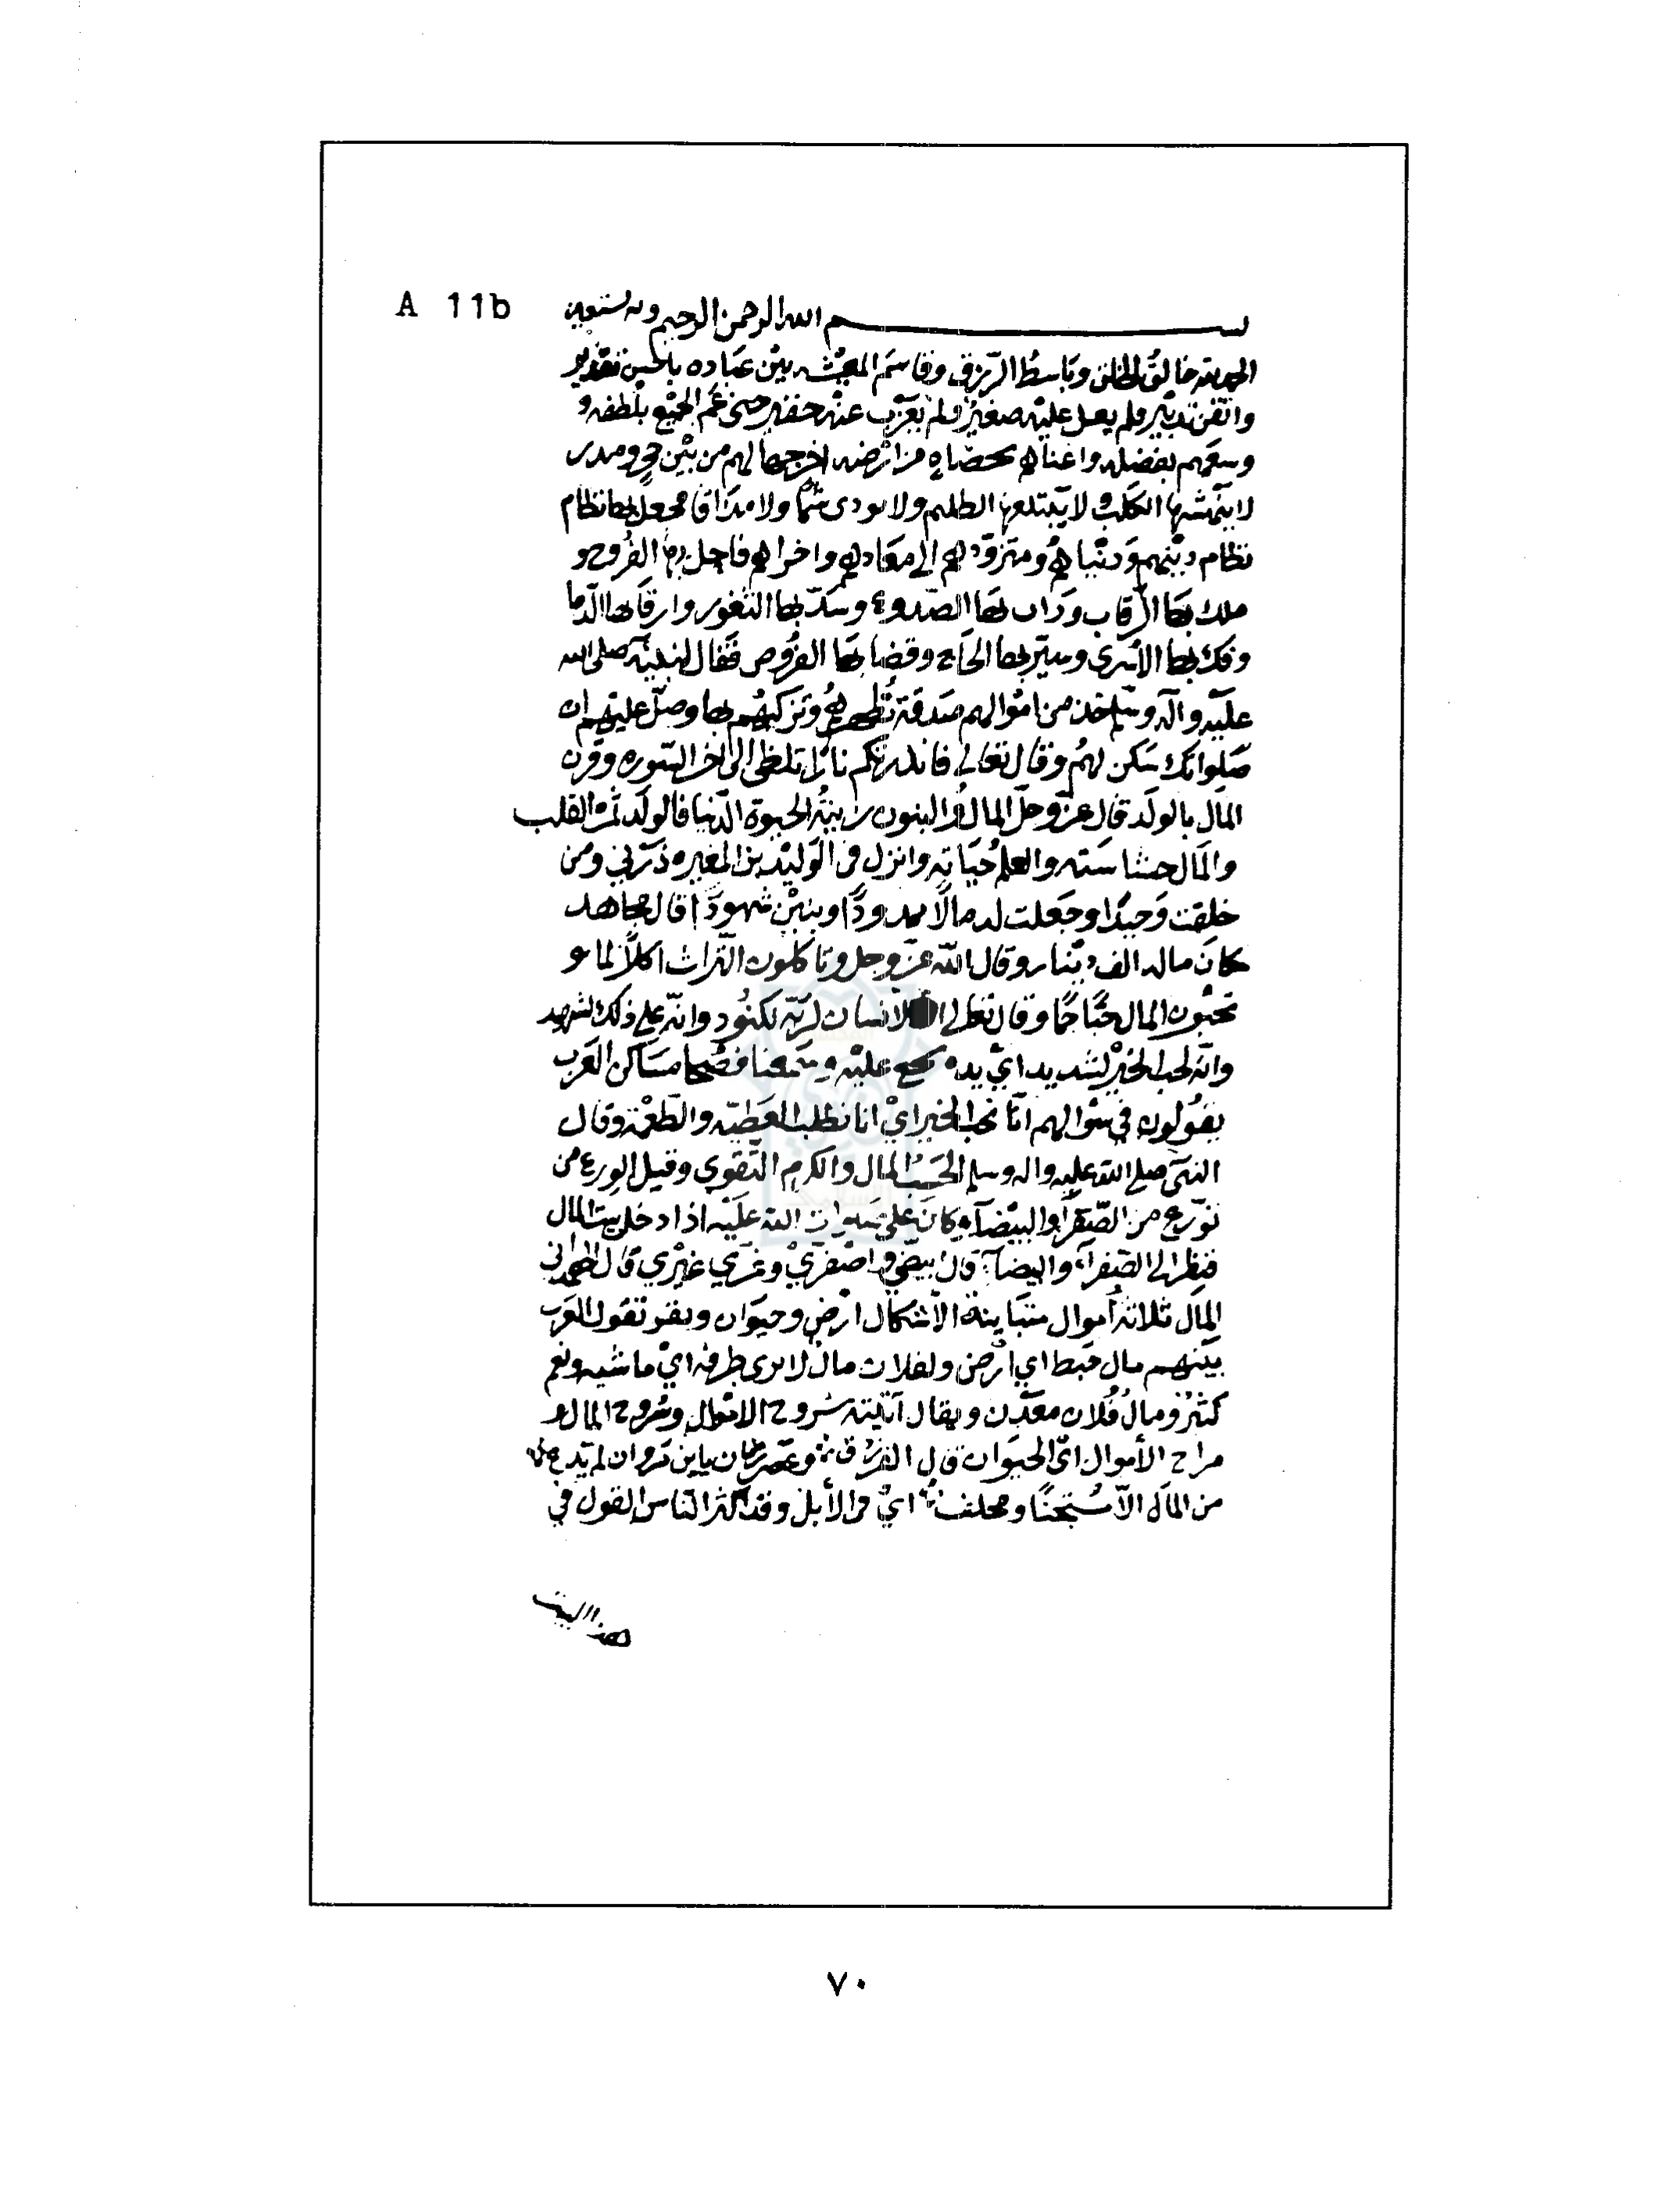 A 11b
بسم الله الرحمن الرحيم وبه نستعين
الحمد لله خالق الخلق وباسط الرزق وقاسم المعيشه بين عباده باحسن تقدير
واتقن تدبير فلم يعل عليه صغير ولم يعزب عنه حقير حتى عم الجميع بلطفه و
وسعهم بفضله واغناهم بحصاه من ارضه اخرجها لهم من بين حجر ومدر
لا ينهشها الكلب ولا يبتلعها الظليم ولا تودى شما ولا مذاقا فجعل بها نظام
نظام دينهم ودنياهم ومتزودهم الى معادهم واخراهم فاحل بها الفروج و
ملك بها الرقاب وراب بها الصدوع وسد بها الثغور وارقا بها الدما
وفك بها الأسرى وسير بها الحاج وقضا بها الفروض فقال لنبيه صلى الله
عليه وآله وسلم خذ من اموالهم صدقة تطهرهم وتزكيهم بها وصل عليهم ان
صلواتك سكن لهم وقال تعالى فانذرتكم نارا تلظى الى اخر السوره وقرن
المال بالولد قال عز وجل المال والبنون زينة الحيوة الدنيا فالولد ثمرة القلب
والمال حشاشته والعلم حياته وانزل في الوليد بن المغيره ذرني ومن
خلقت وحيدا وجعلت له مالا ممدودا وبنين شهودا قال مجاهد
كان ماله الف دينار وقال الله عز وجل وتاكلون التراث اكلا لما و
تحبون المال حبا جما وقال تعالى ان الانسان لربه لكنود وانه على ذلك لشهيد
وانه لحب الخير لشديد اي يده عليه مساكن العرب
يقولون في سؤالهم انا نحب الخير اي انا نطلب العطيه والطعمة وقال
النبي صلى الله عليه واله وسلم الحسب المال والكرم التقوى وقيل الورع من
تورع من الصفرا والبيضاء وكان علي صلوات الله عليه اذا دخل بيت المال
فنظر الى الصفراء والبيضاء قال بيضي واصفري وغري غيري قال الهمداني
المال ثلاثة أموال متباينة الأشكال ارض وحيوان ونقد تقول العرب
بينهم مال قبط اي ارض ولفلان مال لا يرى طرفه اي ماشيه ونعم
كثير ومال فلان معدن ويقال آتيته سروح الاموال وسروح المال و
مراح الأموال اي الحيوان قال الفرزدق وعض زمان يابن مروان لم يدع
من المال الا مسحتا ومجلف اي من الأبل وقد اكثر الناس القول في
٧٠